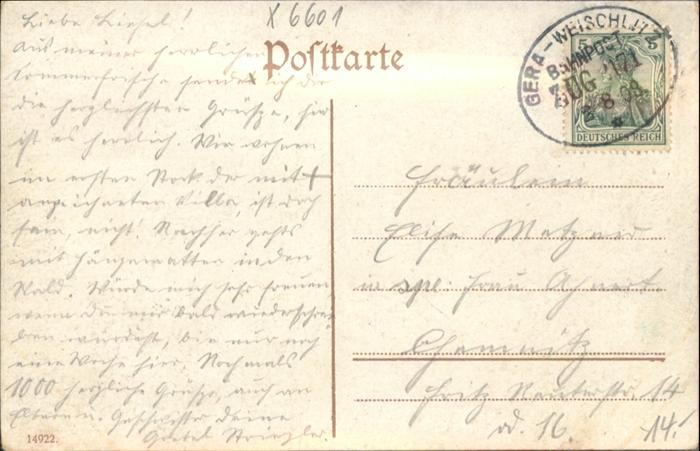 X 6601
Postkarte
GERA - WEISCHLITZ
BAHNPOST
ZUG 1171
8 08
5 5
DEUTSCHES REICH
Liebe Liesel!
Aus meiner herrlichen
Sommerfrische sende ich dir
die herzlichsten Grüsse, hier
ist es herrlich. Wir wohnen
im ersten Stock der mit +
angezeichneten Villa, ist doch
fam, nicht! Nachher gehts
mit Hängematten in den
Wald. Würde mich sehr freuen,
wenn du mir bald wiederschrei-
ben würdest, bin nur noch
eine Woche hier. Nochmals
1000 herzliche Grüsse, auch an
Eltern u. Geschwister deine
Gretel
Fräulein
Elise Metzner
in Frau Ahnert
Chemnitz
Fritz Reuterstr. 14
od. 16. 14.
14922.